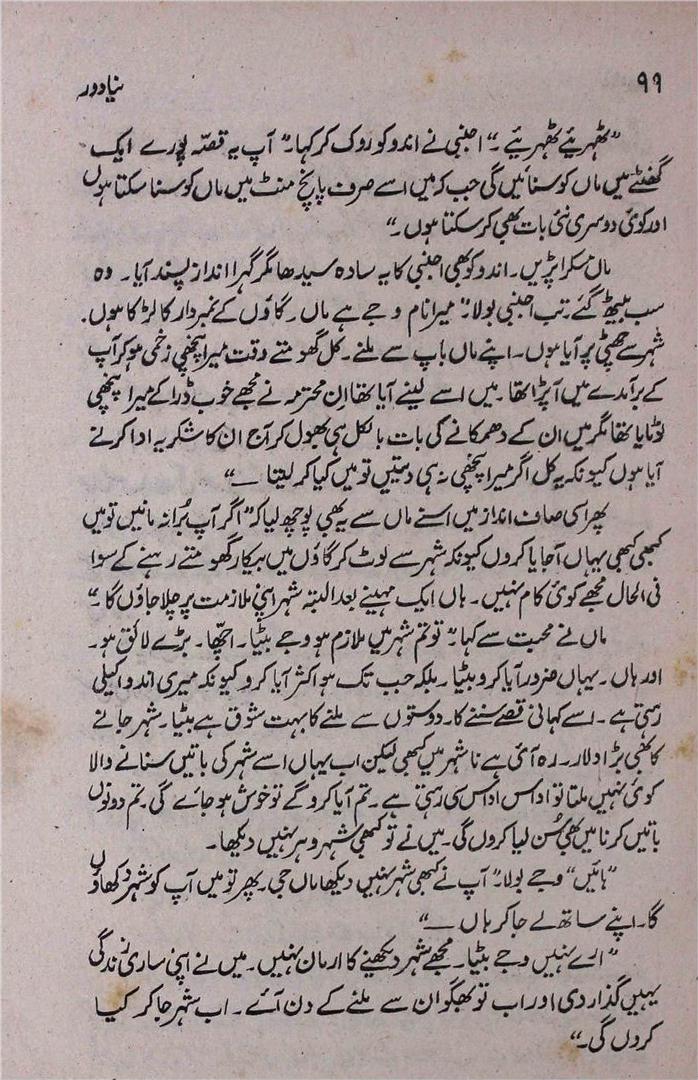 ۹۹ نیا دور
”ٹھہریئے ٹھہریئے۔“ اجنبی نے اندو کو روک کر کہا۔ ”آپ یہ قصّہ پورے ایک
گھنٹے میں ماں کو سنائیں گی جب کہ میں اسے صرف پانچ منٹ میں ماں کو سنا سکتا ہوں
اور کوئی دوسری نئی بات بھی کر سکتا ہوں۔“
ماں مسکرا پڑیں۔ اندو کو بھی اجنبی کا یہ سادہ سیدھا مگر گہرا انداز پسند آیا۔ وہ
سب بیٹھ گئے۔ تب اجنبی بولا۔ ”میرا نام وجے ہے ماں۔ گاؤں کے نمبردار کا لڑکا ہوں۔
شہر سے چھٹی پر آیا ہوں۔ اپنے ماں باپ سے ملنے۔ کل گھومتے وقت میرا پنچھی زخمی ہو کر آپ
کے برآمدے میں آ پڑا تھا۔ میں اسے لینے آیا تھا اِن محترمہ نے مجھے خوب ڈرا کے میرا پنچھی
لوٹایا تھا مگر میں ان کے دھمکانے کی بات بالکل ہی بھول کر آج ان کا شکریہ ادا کرنے
آیا ہوں کیونکہ یہ کل اگر میرا پنچھی نہ ہی دیتیں تو میں کیا کر لیتا —“
پھر اسی صاف انداز میں اسنے ماں سے یہ بھی پوچھ لیا کہ ”اگر آپ بُرا نہ مانیں تو میں
کبھی کبھی یہاں آ جایا کروں کیونکہ شہر سے لوٹ کر گاؤں میں بیکار گھومتے رہنے کے سوا
فی الحال مجھے کوئی کام نہیں۔ ہاں ایک مہینے بعد البتہ شہر اپنی ملازمت پر چلا جاؤں گا۔“
ماں نے محبت سے کہا۔ ”تو تم شہر میں ملازم ہو وجے بیٹا۔ اچھّا۔ بڑے لائق ہو۔
اور ہاں۔ یہاں ضرور آیا کرو بیٹا۔ بلکہ جب تک ہو اکثر آیا کرو کیونکہ میری اندو اکیلی
رہتی ہے۔ اسے کہانی قصے سننے کا۔ دوستوں سے ملنے کا بہت شوق ہے بیٹا۔ شہر جانے
کا بھی بڑا دلار۔ رہ آئی ہے نا شہر میں کبھی لیکن اب یہاں اسے شہر کی باتیں سنانے والا
کوئی نہیں ملتا تو اداس اداس سی رہتی ہے۔ تم آیا کرو گے تو خوش ہو جائے گی۔ تم دونوں
باتیں کرنا میں بھی سُن لیا کروں گی۔ میں نے تو کبھی شہر وہر نہیں دیکھا۔
”ہائیں“ وجے بولا۔ ”آپ نے کبھی شہر نہیں دیکھا ماں جی۔ پھر تو میں آپ کو شہر دکھاؤں
گا۔ اپنے ساتھ لے جا کر ہاں —“
”ارے نہیں وجے بیٹا۔ مجھے شہر دیکھنے کا ارمان نہیں۔ میں نے اپنی ساری زندگی
یہیں گذار دی اور اب تو بھگوان سے ملنے کے دن آئے۔ اب شہر جا کر کیا
کروں گی۔“